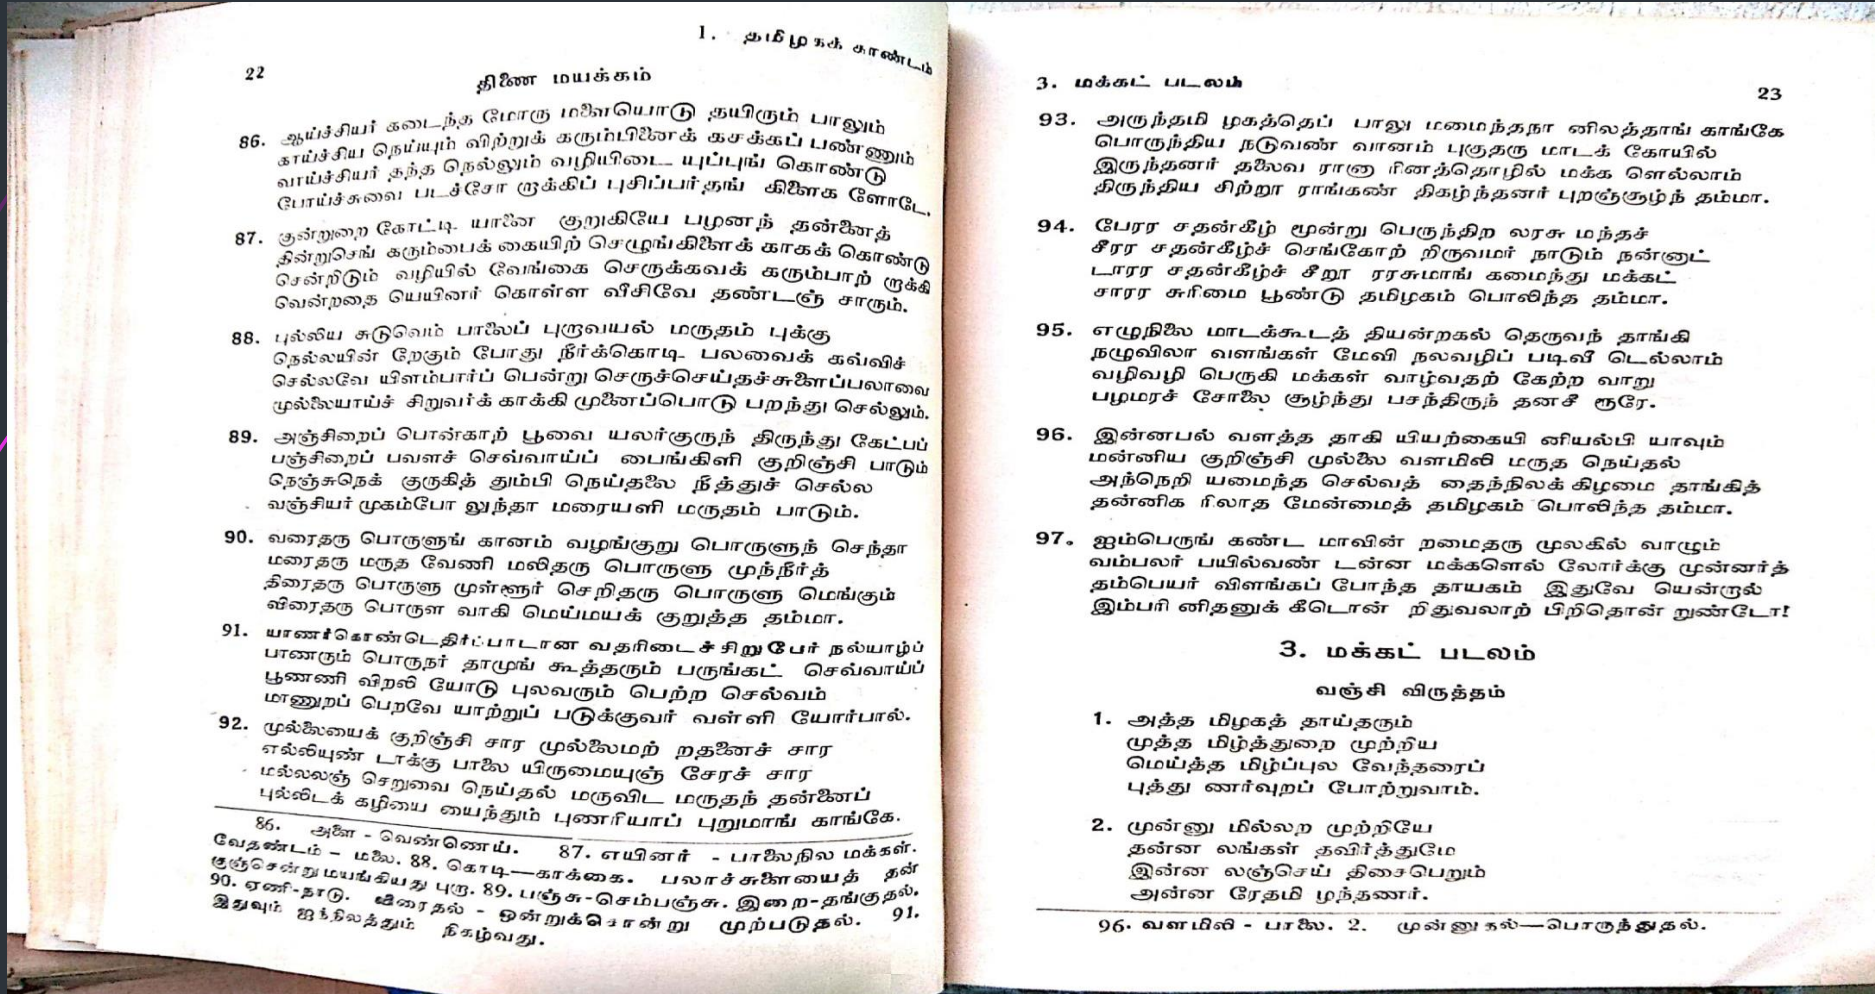 1. தமிழகக் காண்டம்
22
திணை மயக்கம்
86. ஆய்ச்சியர் கடைந்த மோரு மளையொடு தயிரும் பாலும்
காய்ச்சிய நெய்யும் விற்றுக் கரும்பினைக் கசக்கப் பண்ணும்
வாய்ச்சியர் தந்த நெல்லும் வழியிடை யுப்புங் கொண்டு
போய்ச்சுவை படச்சோ றாக்கிப் புசிப்பர்தங் கிளைக ளோடே.
87. குன்றுறை கோட்டி யானை குறுகியே பழனந் தன்னைத்
தின்றுசெங் கரும்பைக் கையிற் செழுங்கிளைக் காகக் கொண்டு
சென்றிடும் வழியில் வேங்கை செருக்கவக் கரும்பாற் றாக்கி
வென்றதை யெயினர் கொள்ள வீசிவே தண்டஞ் சாரும்.
88. புல்லிய சுடுவெம் பாலைப் புறாவயல் மருதம் புக்கு
நெல்லயின் றேகும் போது நீர்க்கொடி பலவைக் கவ்விச்
செல்லவே யிளம்பார்ப் பென்று செருச்செய்தச்சுளைப்பலாவை
முல்லையாய்ச் சிறுவர்க் காக்கி முனைப்பொடு பறந்து செல்லும்.
89. அஞ்சிறைப் பொன்காற் பூவை யலர்குருந் திருந்து கேட்பப்
பஞ்சிறைப் பவளச் செவ்வாய்ப் பைங்கிளி குறிஞ்சி பாடும்
நெஞ்சுநெக் குருகித் தும்பி நெய்தலை நீத்துச் செல்ல
வஞ்சியர் முகம்போ லுந்தா மரையளி மருதம் பாடும்.
90. வரைதரு பொருளுங் கானம் வழங்குறு பொருளுந் செந்தா
மரைதரு மருத வேணி மலிதரு பொருளு முந்நீர்த்
திரைதரு பொருளு முள்ளூர் செறிதரு பொருளு மெங்கும்
விரைதரு பொருள வாகி மெய்மயக் குறுத்த தம்மா.
91. யாணர்கொண்டெதிர்ப்பாடான வதரிடைச்சிறுபேர் நல்யாழ்ப்
பாணரும் பொருநர் தாமுங் கூத்தரும் பருங்கட் செவ்வாய்ப்
பூணணி விறலி யோடு புலவரும் பெற்ற செல்வம்
மாணுறப் பெறவே யாற்றுப் படுக்குவர் வள்ளி யோர்பால்.
92. முல்லையைக் குறிஞ்சி சார முல்லைமற் றதனைச் சார
எல்லியுண் டாக்கு பாலை யிருமையுஞ் சேரச் சார
மல்லலஞ் செறுவை நெய்தல் மருவிட மருதந் தன்னைப்
புல்லிடக் கழியை யைந்தும் புணரியாப் புறுமாங் காங்கே.
86. அளை - வெண்ணெய். 87. எயினர் - பாலைநில மக்கள்.
வேதண்டம் - மலை. 88. கொடி—காக்கை. பலாச்சுளையைத் தன்
குஞ்சென்று மயங்கியது புரு. 89. பஞ்சு-செம்பஞ்சு. இறை-தங்குதல்.
90. ஏணி-நாடு. விரைதல் - ஒன்றுக்கொன்று முற்படுதல். 91.
இதுவும் ஐந்நிலத்தும் நிகழ்வது.
3. மக்கட் படலம்
23
93. அருந்தமி ழகத்தெப் பாலு மமைந்தநா னிலத்தாங் காங்கே
பொருந்திய நடுவண் வானம் புகுதரு மாடக் கோயில்
இருந்தனர் தலைவ ரானா ரினத்தொழில் மக்க ளெல்லாம்
திருந்திய சிற்றூ ராங்கண் திகழ்ந்தனர் புறஞ்சூழ்ந் தம்மா.
94. பேரர சதன்கீழ் மூன்று பெருந்திற லரசு மந்தச்
சீரர சதன்கீழ்ச் செங்கோற் றிருவமர் நாடும் நன்னாட்
டாரர சதன்கீழ்ச் சீறூ ரரசுமாங் கமைந்து மக்கட்
சாரர சுரிமை பூண்டு தமிழகம் பொலிந்த தம்மா.
95. எழுநிலை மாடக்கூடத் தியன்றகல் தெருவந் தாங்கி
நழுவிலா வளங்கள் மேவி நலவழிப் படிவீ டெல்லாம்
வழிவழி பெருகி மக்கள் வாழ்வதற் கேற்ற வாறு
பழமரச் சோலை சூழ்ந்து பசந்திருந் தனசீ றூரே.
96. இன்னபல் வளத்த தாகி யியற்கையி னியல்பி யாவும்
மன்னிய குறிஞ்சி முல்லை வளமிலி மருத நெய்தல்
அந்நெறி யமைந்த செல்வத் தைந்நிலக் கிழமை தாங்கித்
தன்னிக ரிலாத மேன்மைத் தமிழகம் பொலிந்த தம்மா.
97. ஐம்பெருங் கண்ட மாவின் றமைதரு முலகில் வாழும்
வம்பலர் பயில்வண் டன்ன மக்களெல் லோர்க்கு முன்னர்த்
தம்பெயர் விளங்கப் போந்த தாயகம் இதுவே யென்றால்
இம்பரி னிதனுக் கீடொன் றிதுவலாற் பிறிதொன் றுண்டோ!
3. மக்கட் படலம்
வஞ்சி விருத்தம்
1. அத்த மிழகத் தாய்தரும்
முத்த மிழ்த்துறை முற்றிய
மெய்த்த மிழ்ப்புல வேந்தரைப்
புத்து ணர்வுறப் போற்றுவாம்.
2. முன்னு மில்லற முற்றியே
தன்ன லங்கள் தவிர்த்துமே
இன்ன லஞ்செய் திசைபெறும்
அன்ன ரேதமி ழந்தணர்.
96. வளமிலி - பாலை. 2. முன்னுதல்—பொருந்துதல்.